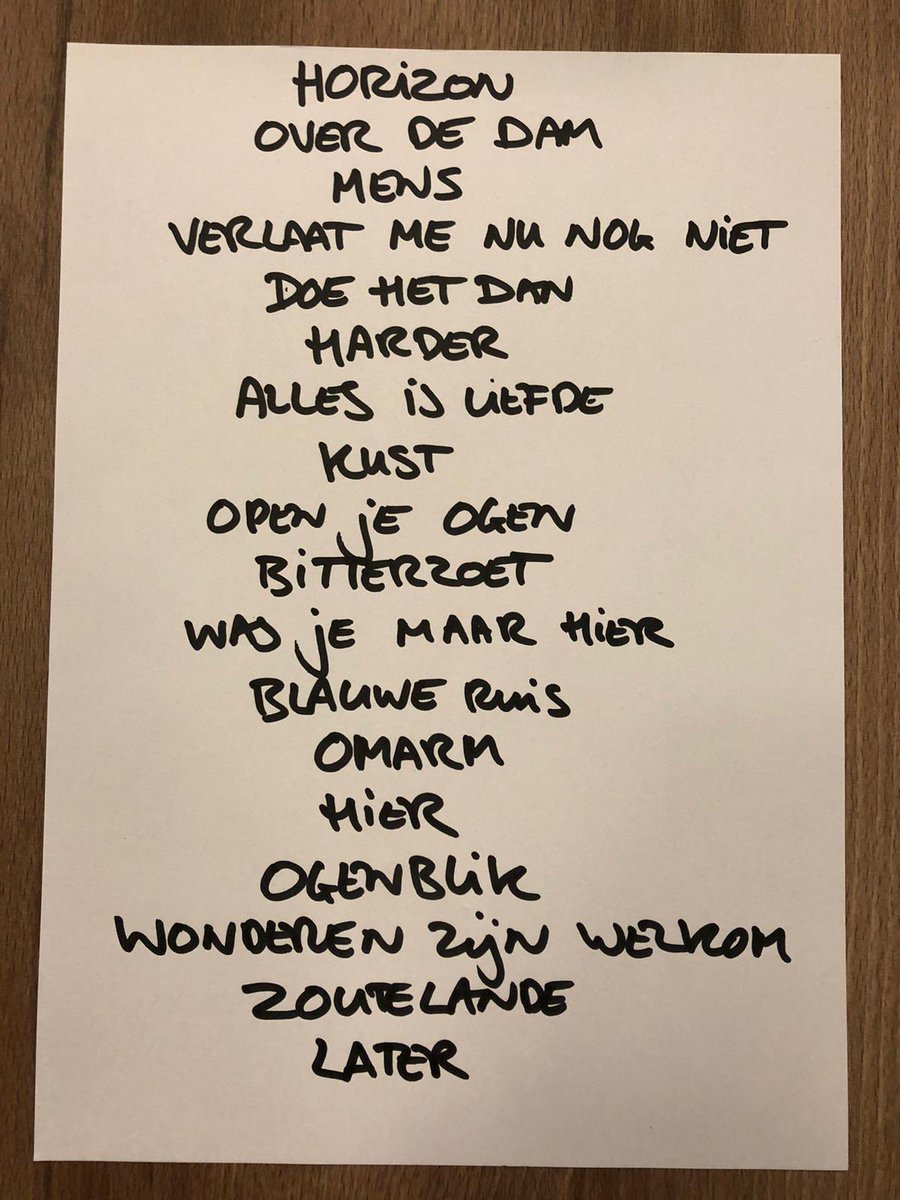 HORIZON
OVER DE DAM
MENS
VERLAAT ME NU NOG NIET
DOE HET DAN
HARDER
ALLES IS LIEFDE
KUST
OPEN JE OGEN
BITTERZOET
WAS JE MAAR HIER
BLAUWE RUIS
OMARM
HIER
OGENBLIK
WONDEREN ZIJN WELKOM
ZOUTELANDE
LATER